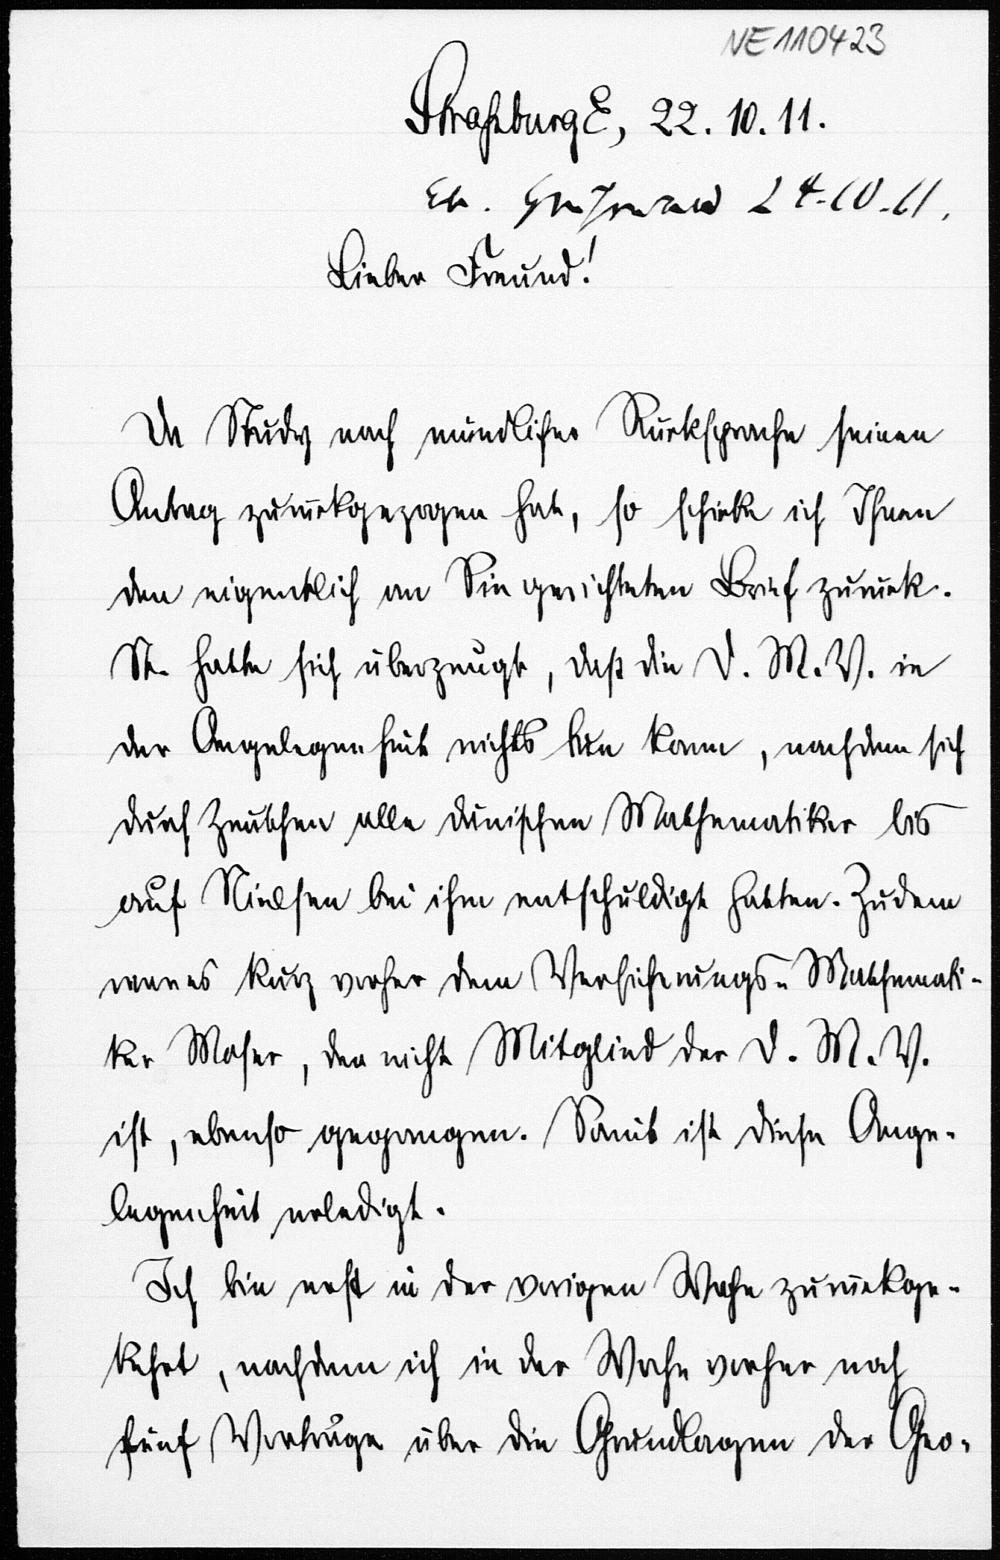 NE110423
Straßburg E, 22. 10. 11.
24.10.11.
Lieber Freund!
Da Study nach mündlicher Rücksprache seinen
Antrag zurückgezogen hat, so schicke ich Ihnen
den eigentlich an Sie gerichteten Brief zurück.
St. hatte sich überzeugt, daß die D. M. V. in
der Angelegenheit nichts tun kann, nachdem sich
durch Zeuthen alle dänischen Mathematiker bis
auf Nielsen bei ihm entschuldigt hatten. Zudem
war es kurz vorher dem Versicherungs-Mathemati-
ker Moser, der nicht Mitglied der D. M. V.
ist, ebenso gegangen. Somit ist diese Ange-
legenheit erledigt.
Ich bin erst in der vorigen Woche zurückge-
kehrt, nachdem ich in der Woche vorher noch
fünf Vorträge über die Grundlagen der Geo-